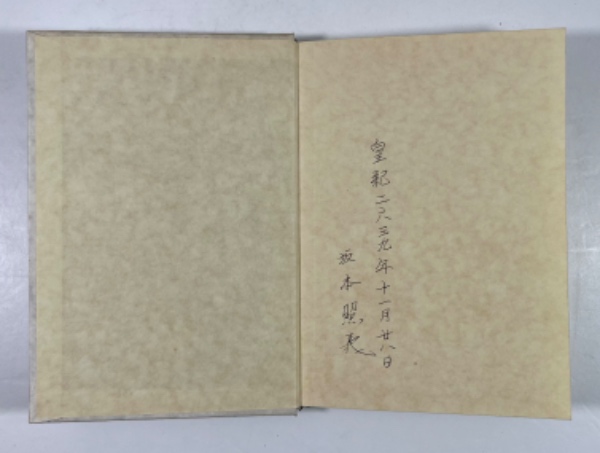 皇紀二六三九年十一月廿八日
坂本照